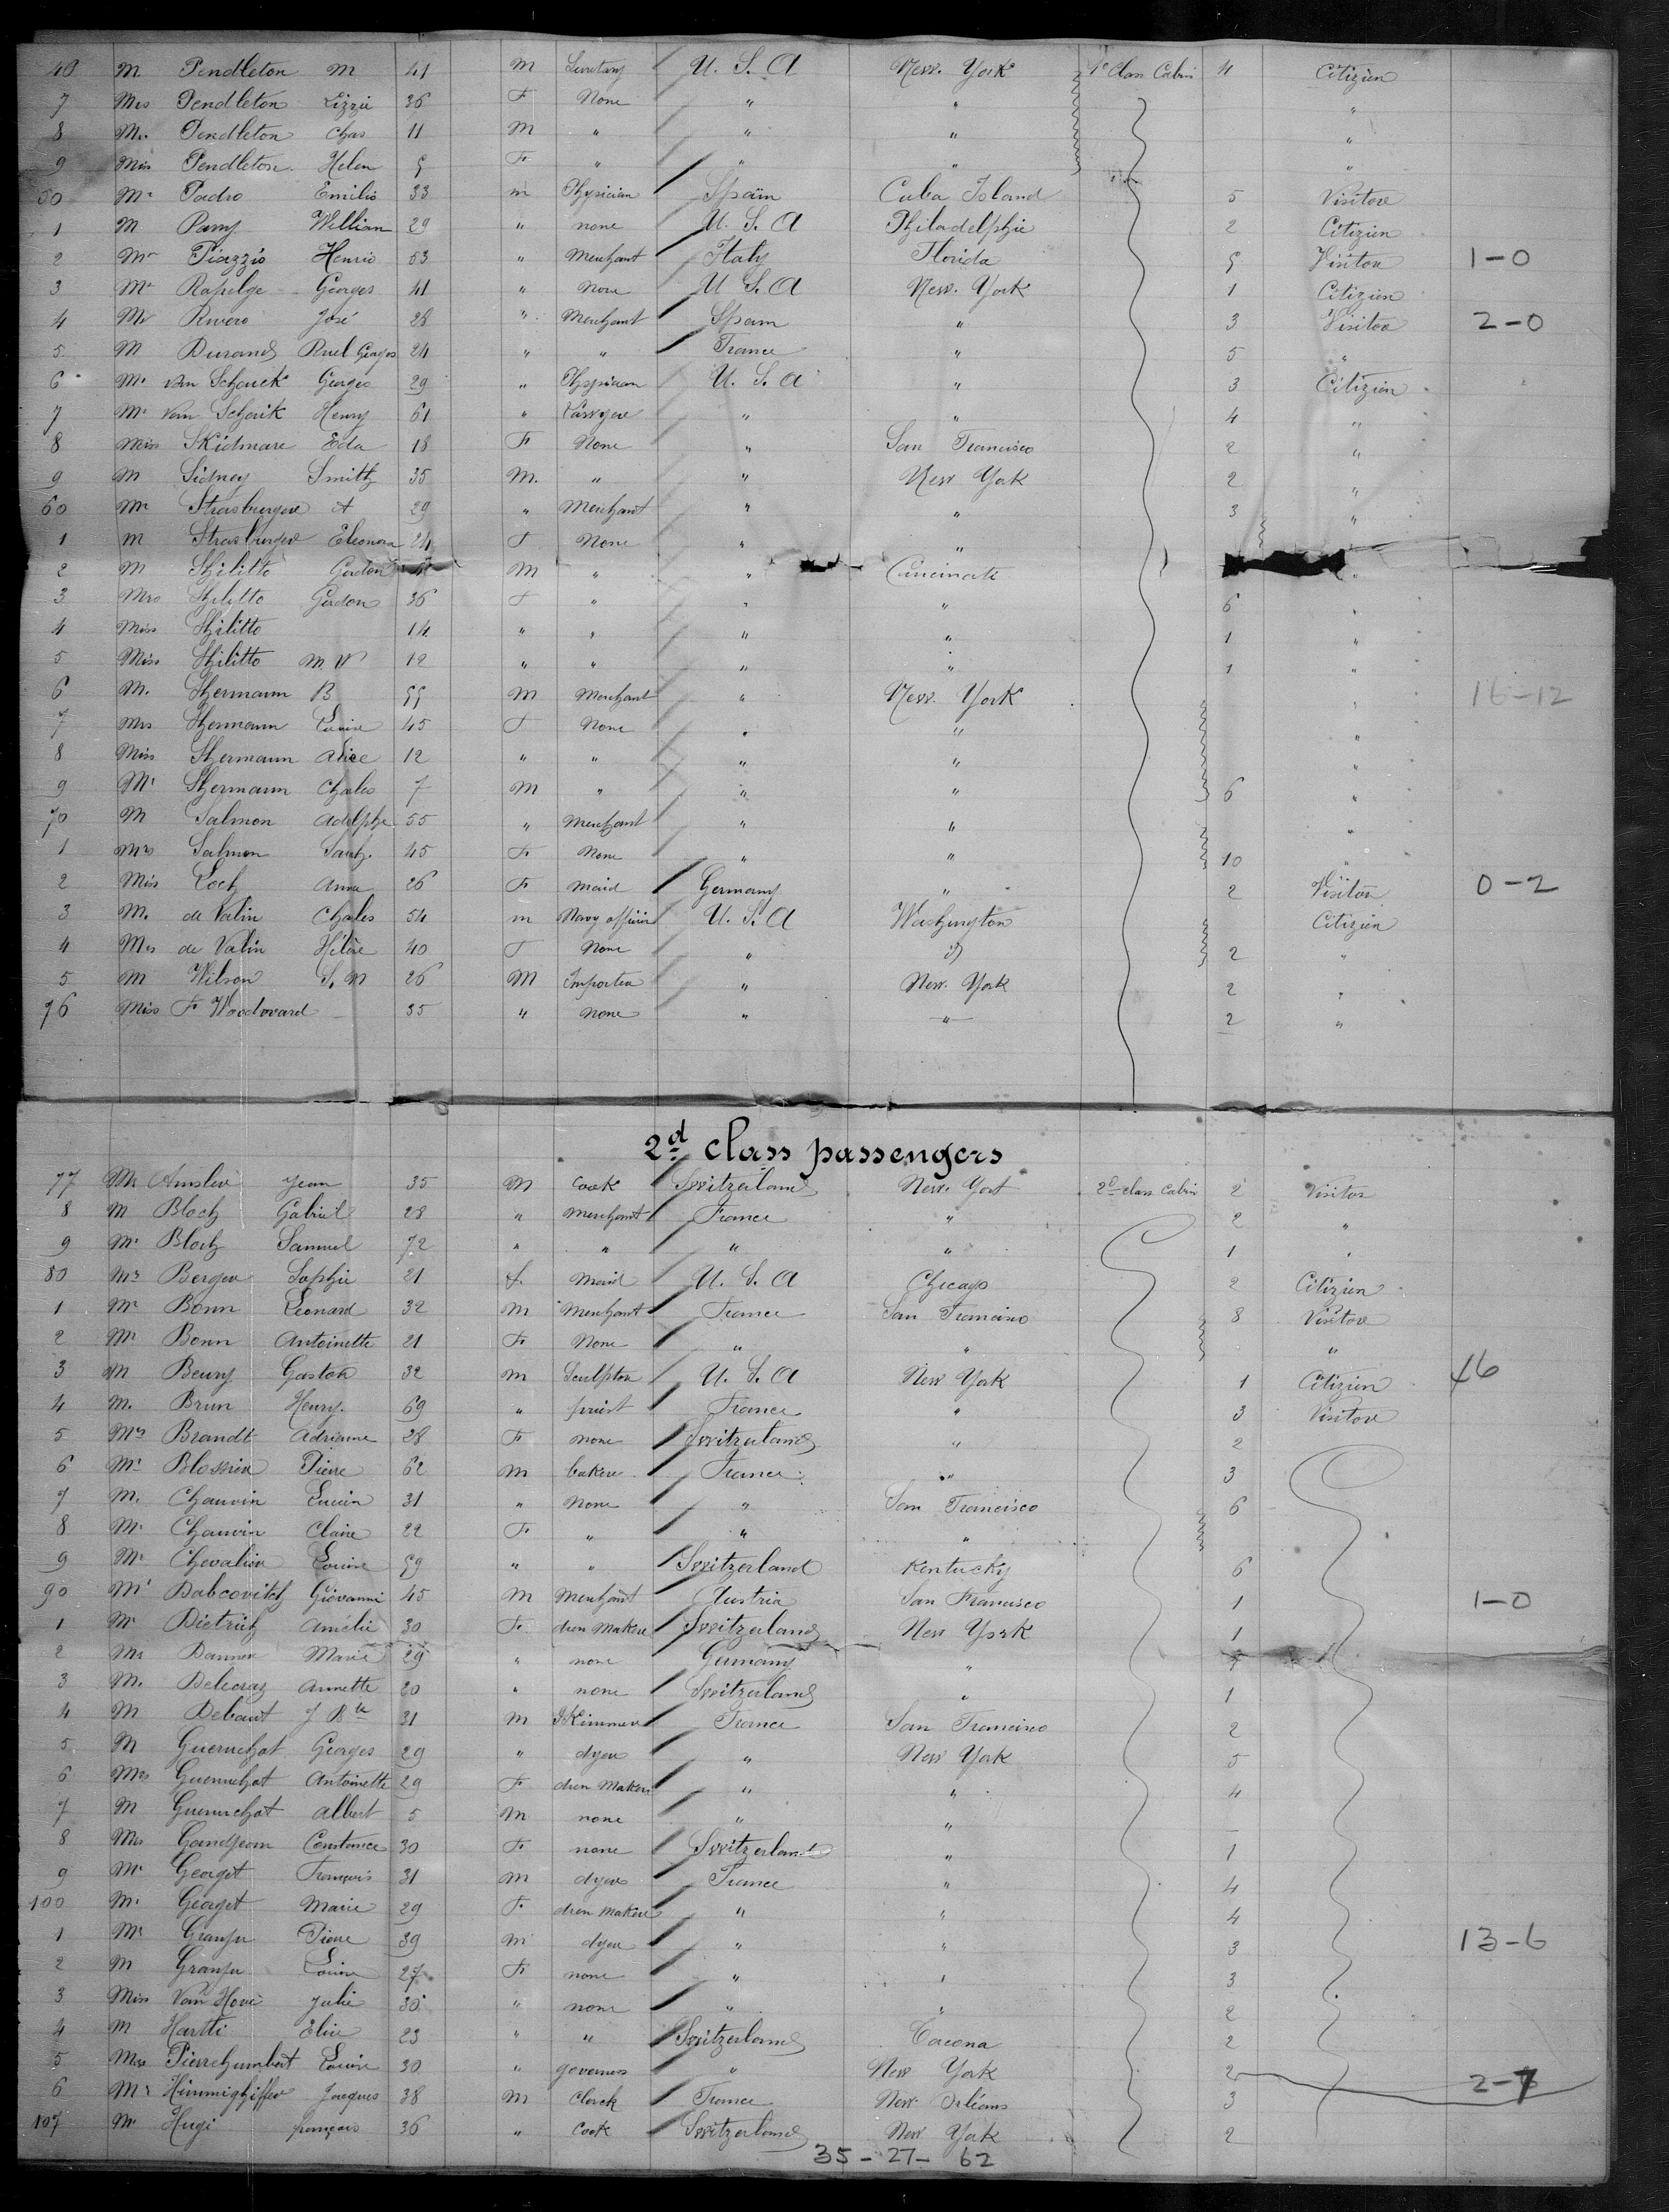 40 M Pendleton M 41 M Secretary U. S. A New. York 1e Class Cabin 4 Citizien
7 Mrs Pendleton Lizzie 36 F None " " "
8 Mr. Pendleton Chas 11 M " " " "
9 Miss Pendleton. Helen 5 F " " " "
50 Mr Emilio 33 m Physician Spain Cuba Island 5 Visitore
1 M Parry William 29 " none U. S. A Philadelphie 2 Citizien
2 Mr Piazzio Henrio 53 " Merchant Italy Florida 5 Visitore 1-0
3 Mr Rapelge Georges 41 " None U S. A New. York 1 Citizien
4 Mr Rivero José 28 " Merchant Spain " 3 Visitor 2-0
5 M Durand Ruel Georges 24 " " France " 5 "
6 Mr. van Schaick Georges 29 " Physician U. S. A " 3 Citizien
7 Mr Van Schaick Henry 61 " " " 4 "
8 Miss Skidmare Eda 18 F None " San Francisco 2 "
9 M Sidney Smith 35 M. " " New York 2 "
60 Mr Strasburger A 29 " Merchant " " 3 "
1 M Strasburger Eleonora 24 F None " " "
2 M Shilitto Gordon M " " Cincinati "
3 Mrs Shilitto Gordon 36 F " " " 6 "
4 Miss Shilitto 14 " " " " 1 "
5 Miss Shilitto M W 12 " " " " 1 "
6 M. Shermann B 55 M Merchant " New. York " 16-12
7 Mrs Shermann Louise 45 F None " " "
8 Miss Shermann Alice 12 " " " " "
9 Mr Shermann Charles 7 M " " " 6 "
70 M Salmon Adelphe 55 " Merchant " " "
1 Mrs Salmon Sarah. 45 F None " " 10 "
2 Miss Loch Anna 26 F maid Germany " 2 Visitor 0-2
3 M. de Valin Charles 54 m Navy officier U. S. A Washington Citizien
4 Mrs de Valin Hélène 40 F None " id 2 "
5 M Wilson S. M 26 M Importer " New. York 2 "
76 Miss F Woodward 35 " none " " 2 "
2d class passengers
77 Mr Amsler Jean 35 M Cook Switzerland New. York 2d class Cabin 2 Visitor
8 M Bloch Gabriel 28 " Merchant France " 2 "
9 Mr Bloch Samuel 72 " " " " 1 "
80 Mrs Berger Sophie 21 F. Maid U. S. A Chicago 2 Citizien
1 Mr Bonn Léonard 32 M Merchant France San Francisco 8 Visitore
2 Mr Bonn Antoinette 21 F None " " "
3 M Beury Gaston 32 M Sculptor U. S. A New York 1 Citizien 46
4 M. Brun Henry. 69 " priest France " 3 Visitore
5 Mrs Brandt Adrienne 28 F none Switzerland " 2
6 Mr Blossier Pierre 62 M baker France " 3
7 M. Chauvin Lucien 31 " None " San Francisco 6
8 Mr Chauvin Claire 22 F " " "
9 Mr Chevalier Louise 59 " " Switzerland Kentucky 6
90 Mr Dabcovitch Giovanni 45 M Merchant Austria San Francisco 1 1-0
1 Mr Dietrich Amélie 30 F dress Maker Switzerland New York 1
2 Mr Danner Marie 29 " none Germany " 1
3 M. Annette 20 " none Switzerland " 1
4 M Debaut J Bte 31 M Skimmer France San Francisco 2
5 M Guenuchot Georges 29 " dyer " New York 5
6 Mrs Guenuchot Antoinette 29 F dress Maker " " 4
7 M Guenuchot Albert 5 M none " "
8 Mrs Gandjean Constance 30 F none Switzerland " 1
9 Mr Georget François 31 M dyer France " 4
100 Mr Georget Marie 29 F dress Maker " " 4
1 Mr Granju Pierre 39 M dyer " " 3 13-6
2 M Granju Louise 27 F none " " 3
3 Miss Van Hove Julie 30 " none " " 2
4 M Hartti Elise 23 " " Switzerland Tacona 2
5 Miss Pierrehumbert Louise 30 " governess " New York 2
6 Mr Jacques 38 M Clerck France New Orléans 3 2-7
107 Mr Hugi François 36 " Cook Switzerland New York 2
35-27-62